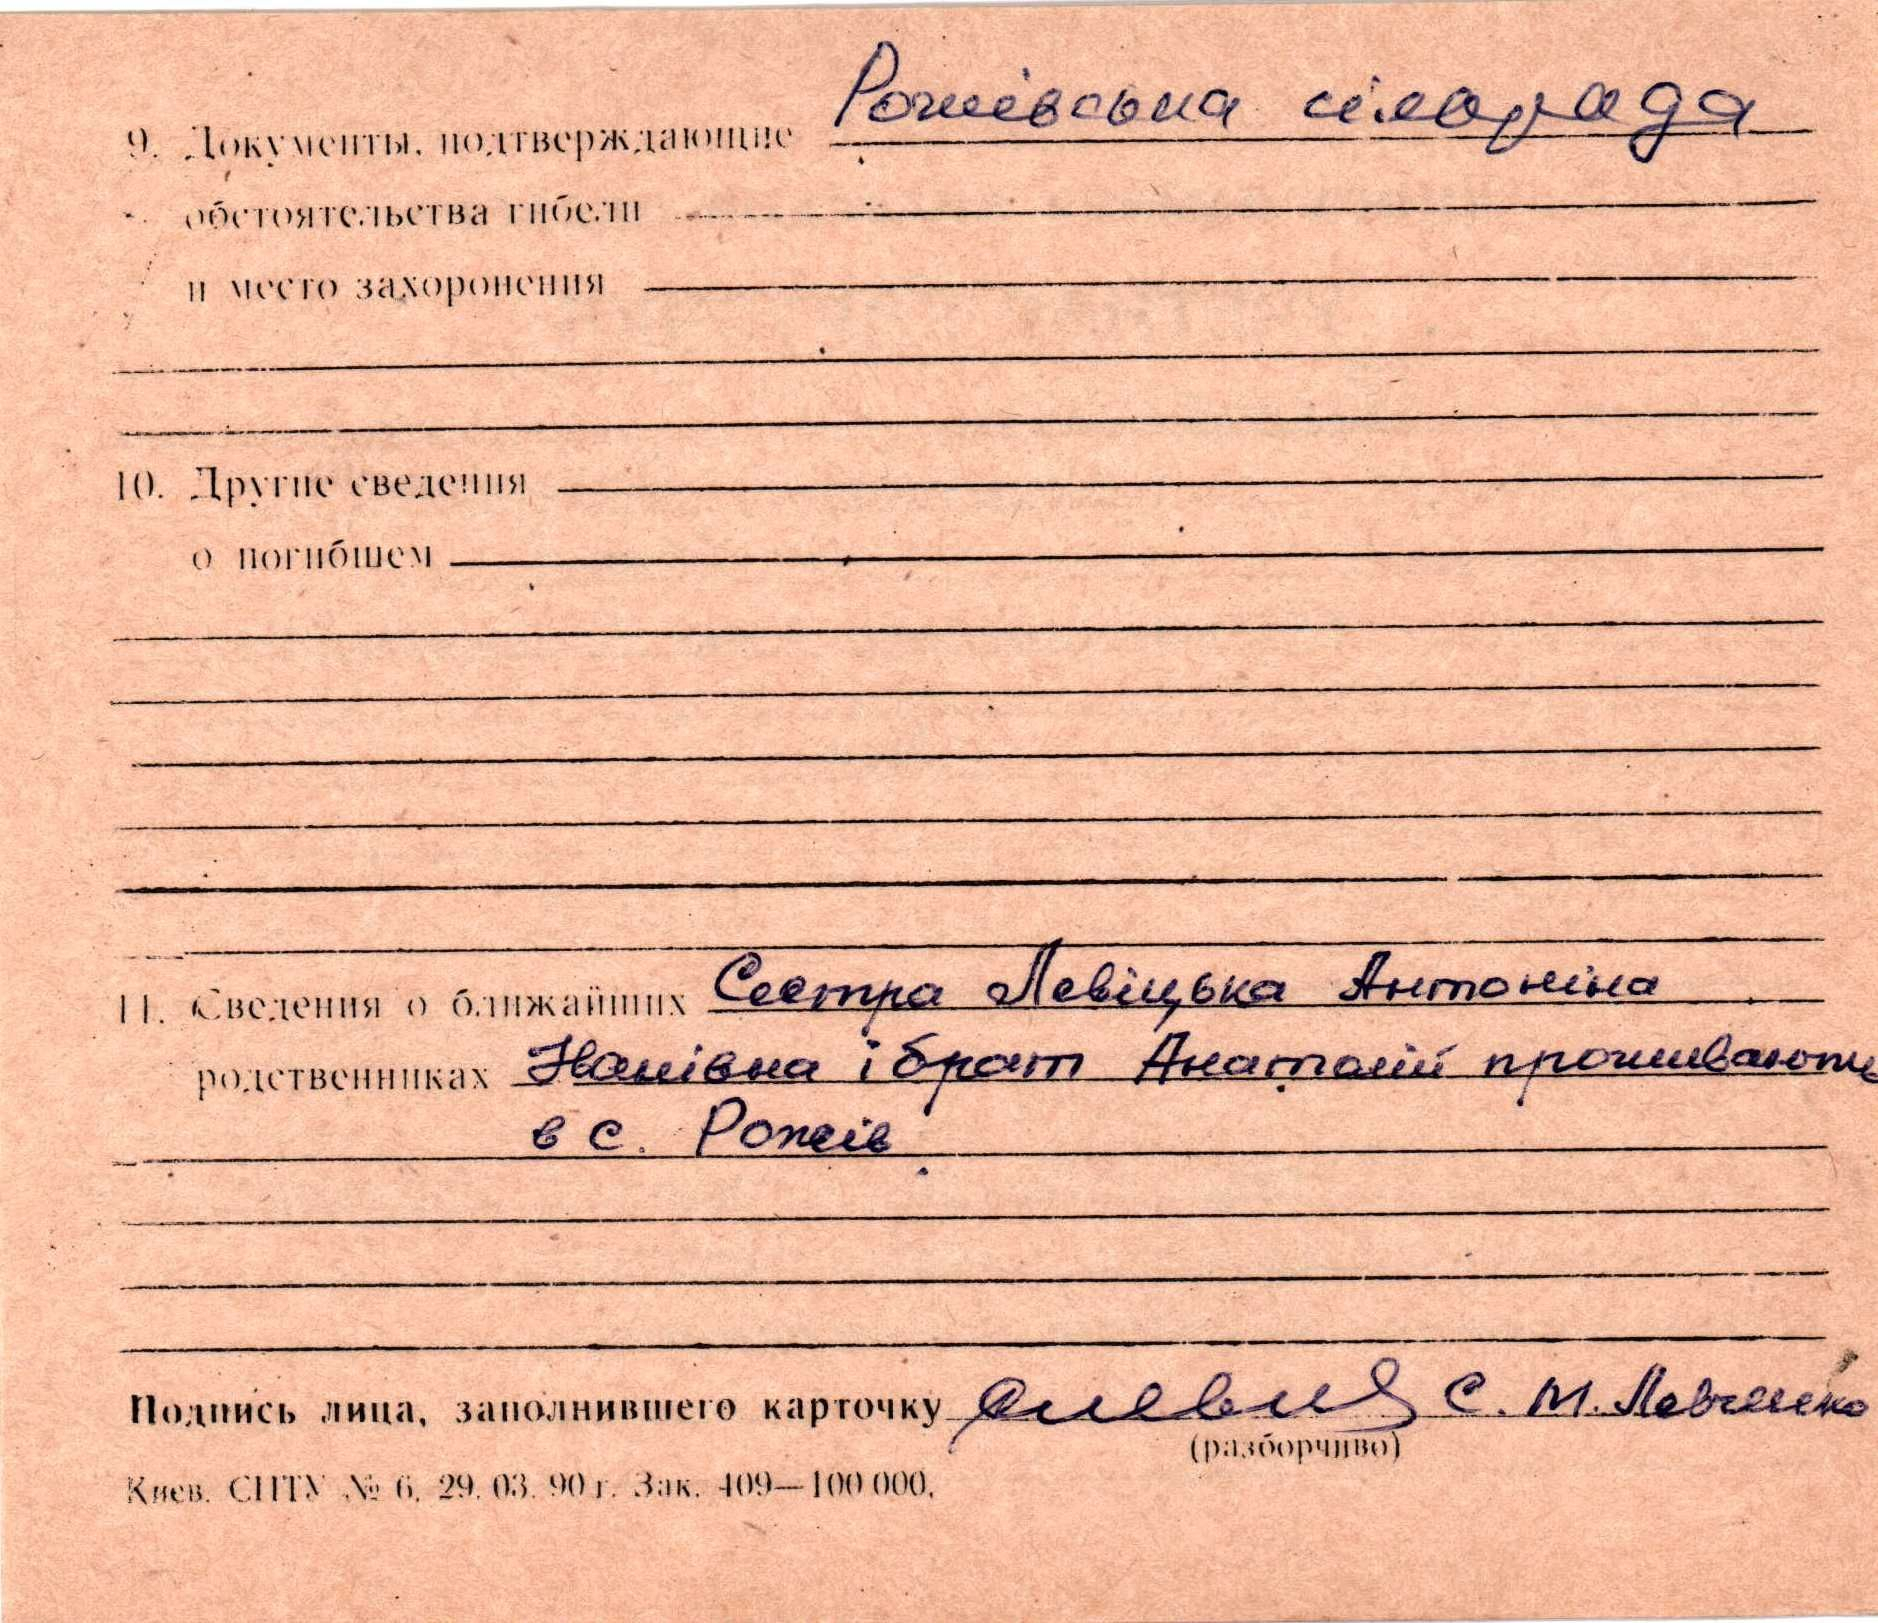 9. Документы, подтверждающие Рожівська сільрада
обстоятельства гибели
и место захоронения
10. Другие сведения
о погибшем
11. Сведения о ближайших Сестра Левіцька Антоніна
родственниках і брат Анатолій проживають
в с. Рожів
Подпись лица, заполнившего карточку С. М. Левченко
(разборчиво)
Киев. СПТУ № 6. 29. 03. 90 г. Зак. 409—100 000.